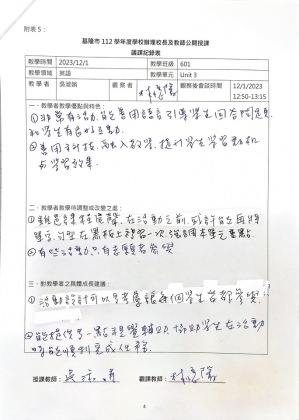 附表 5：
基隆市 112 學年度學校辦理校長及教師公開授課
議課紀錄表
教學時間 2023/12/1 教學班級 601
教學領域 英語 教學單元 Unit 3
教學者 觀察者 觀察後會談時間 12/1/2023
12:50-13:15
一、教學者教學優點與特色：
①非常有活力，能善用語言引導學生回答問題
和學生有良好互動。
②善用科技，融入教學，提升學生學習動機
與學習效果。
二、教學者教學待調整或改變之處：
在活動之前，或許能再將
單字、句型在黑板上複習一次，強調本單元重點。
②有些活動只有志願者參與
三、對教學者之具體成長建議：
①活動設計可以思考讓每個學生皆都參與。
②能提供多一點視覺輔助，協助學生在活動
時能順利完成任務。
授課教師： 觀課教師：
4